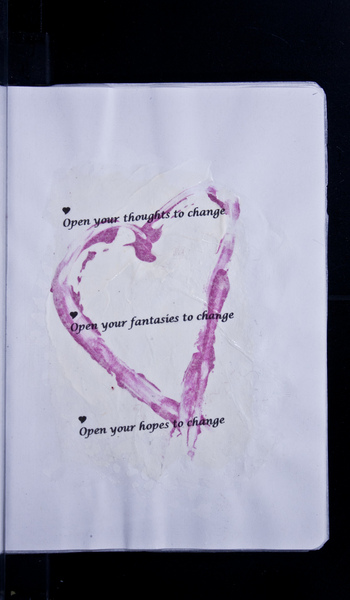 Open your thoughts to change.
Open your fantasies to change
Open your hopes to change